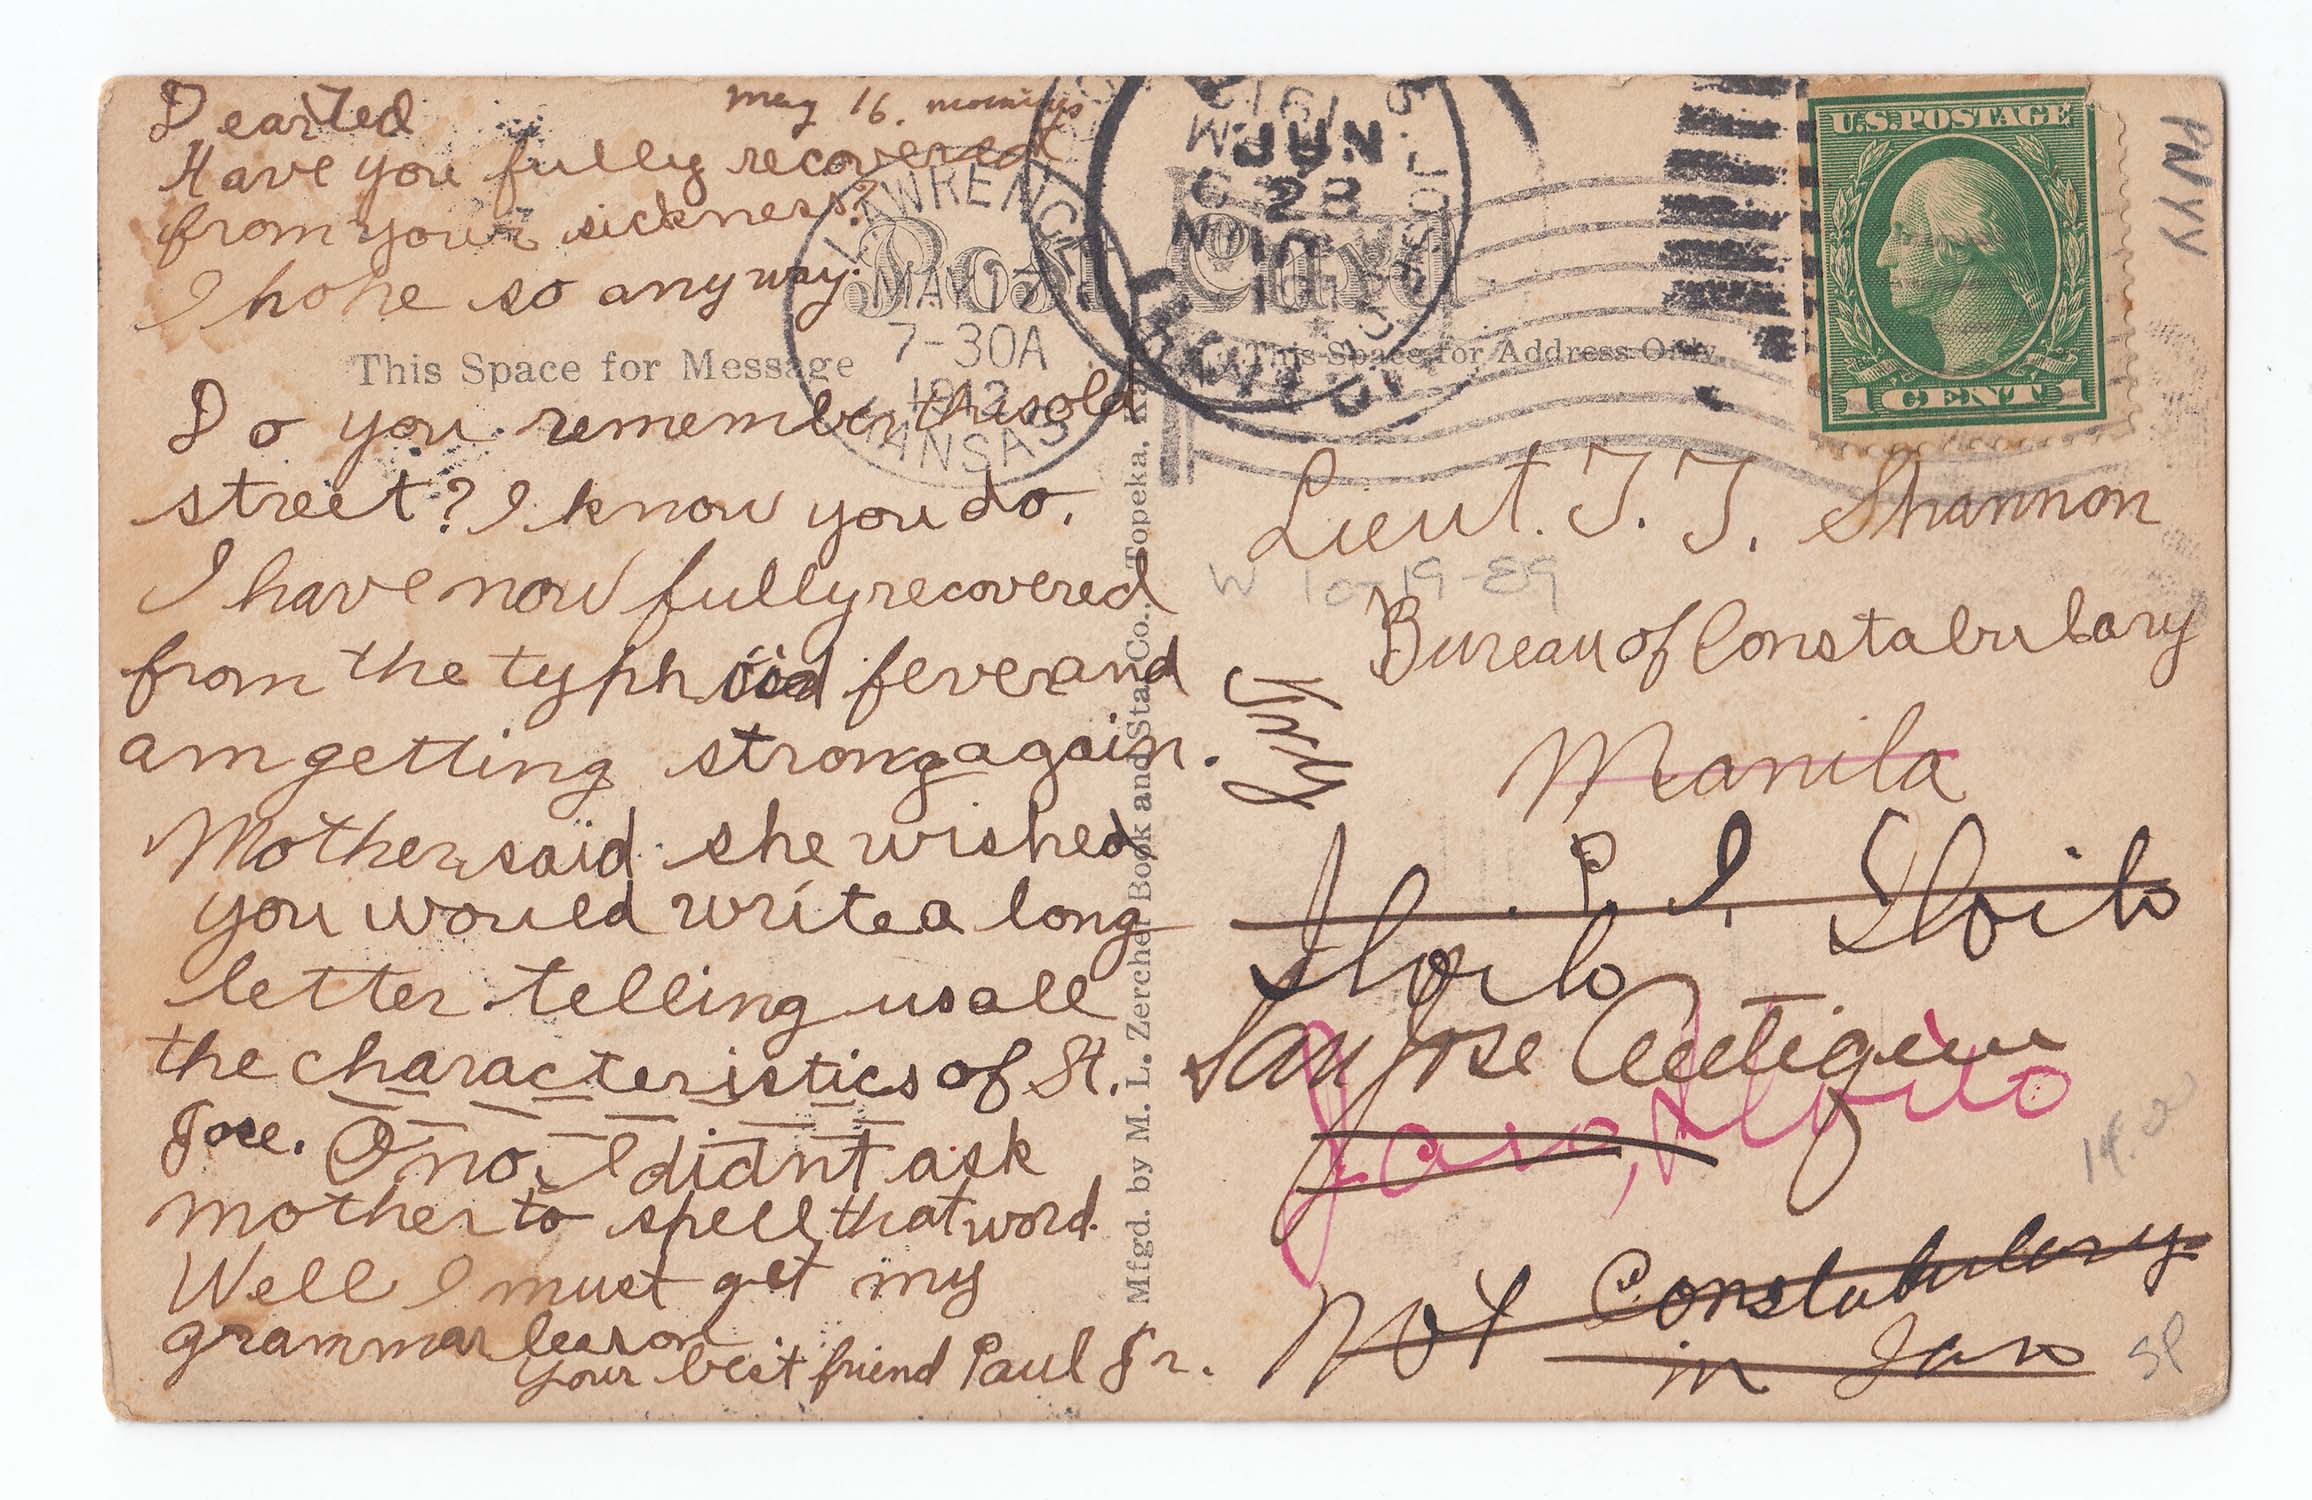 Dear Ted
May 16. morning
Have you fully recovered
from your sickness?
I hope so anyway.
This Space for Message
Do you remember this old
street? I know you do.
I have now fully recovered
from the typhoid fever and
am getting strong again.
Mother said she wished
you would write a long
letter telling us all
the characteristics of St.
Jose. O no, I didn't ask
mother to spell that word.
Well I must get my
grammar lesson
Your best friend Paul Jr.
Mfgd. by M. L. Zercher Book and Sta. Co., Topeka, Ka
Post Card
This Space for Address Only
LAWRENCE
MAY 17
7-30A
1912
KANSAS
JUN
28
10
U.S. POSTAGE
1 CENT 1
PNYY
Lieut. T. T. Shannon
W 10-19-89
Bureau of Constabulary
Manila
P. I. Iloilo
Iloilo
San Jose Antique
Jaro, Iloilo
14.00
Not Constabulary
in Jaro
SP